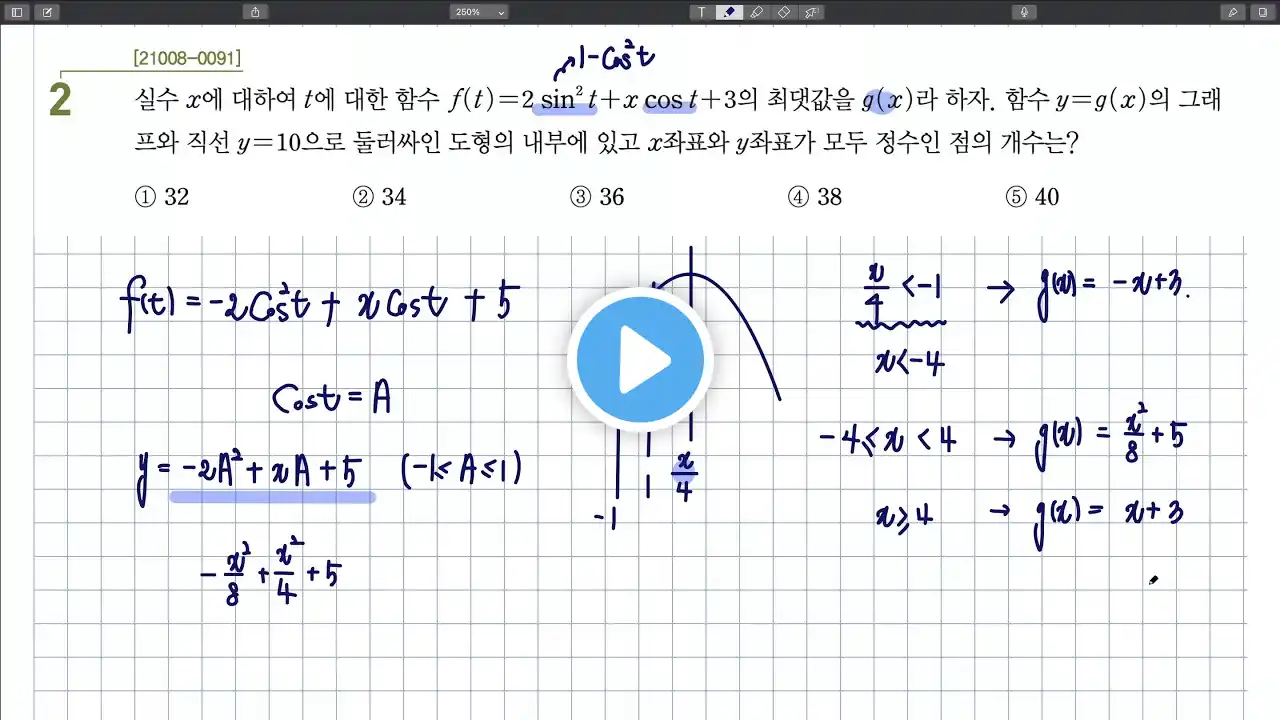 250%
T
[21008-0091]
1-Cos²t
2 실수 x에 대하여 t에 대한 함수 f(t)=2 sin² t+x cos t+3의 최댓값을 g(x)라 하자. 함수 y=g(x)의 그래
프와 직선 y=10으로 둘러싸인 도형의 내부에 있고 x좌표와 y좌표가 모두 정수인 점의 개수는?
① 32 ② 34 ③ 36 ④ 38 ⑤ 40
f(t) = -2Cos²t + x Cost + 5
Cost = A
y = -2A² + xA + 5 (-1≤A≤1)
-x²/8 + x²/4 + 5
-1 1 x/4
x/4 < -1 → g(x) = -x+3.
x<-4
-4≤x<4 → g(x) = x²/8 + 5
x≥4 → g(x) = x+3